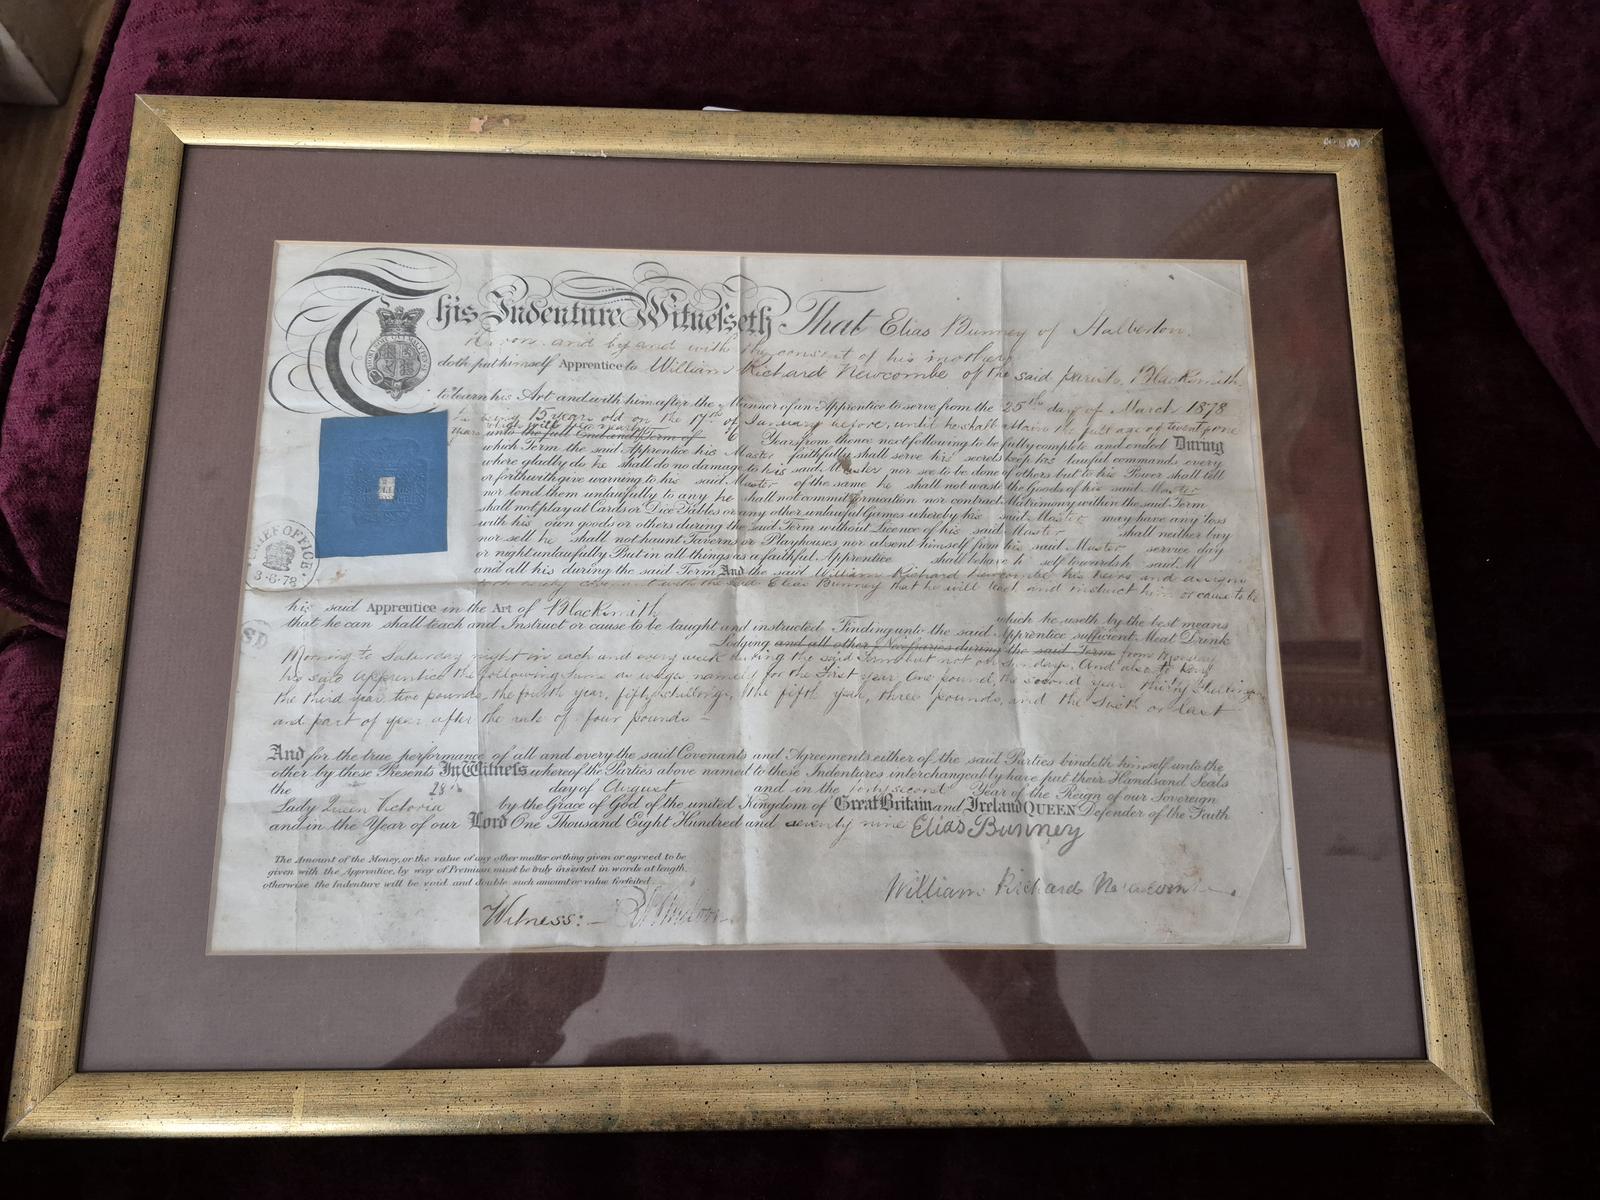 This Indenture Witnesseth That Elias Bunney of Halberton
Devon and by and with the consent of his mother
doth put himself Apprentice to William Richard Newcombe of the said parish, Blacksmith,
to learn his Art and with him after the Manner of an Apprentice to serve from the 25th day of March 1878
he being 15 years old on the 17th of January before, until he shall attain the full age of twenty one
years which will be nearly
unto the full End and Term of 6 Years from thence next following to be fully complete and ended During
which Term the said Apprentice his Master faithfully shall serve his secrets keep his lawful commands every
where gladly do he shall do no damage to his said Master nor see to be done of others but to his Power shall tell
or forthwith give warning to his said Master of the same he shall not waste the Goods of his said Master
nor lend them unlawfully to any he shall not commit fornication nor contract Matrimony within the said Term
shall not play at Cards or Dice Tables or any other unlawful Games whereby his said Master may have any loss
with his own goods or others during the said Term without Licence of his said Master shall neither buy
nor sell he shall not haunt Taverns or Playhouses nor absent himself from his said Master service day
or night unlawfully But in all things as a faithful Apprentice shall behave h self towards h said M
and all his during the said Term And the said William Richard Newcombe his heirs and assigns
covenant with the said Elias Bunney that he will teach and instruct him or cause to be
his said Apprentice in the Art of Blacksmith
which he useth by the best means
that he can shall teach and Instruct or cause to be taught and instructed Finding unto the said Apprentice sufficient Meat Drink
Lodging and all other Necessaries during the said Term from Monday
Morning to Saturday night in each and every week during the said Term but not on Sundays. And also to
his said Apprentice the following sums as wages namely for the First year, One pound, the second year thirty shillings,
the third year two pounds, the fourth year, fifty shillings, the fifth year, three pounds, and the sixth or last
and part of year after the rate of four pounds –
And for the true performance of all and every the said Covenants and Agreements either of the said Parties bindeth himself unto the
other by these Presents In Witness whereof the Parties above named to these Indentures interchangeably have put their Hands and Seals
the 28th day of August and in the forty second Year of the Reign of our Sovereign
Lady Queen Victoria by the Grace of God of the united Kingdom of Great Britain and Ireland QUEEN Defender of the Faith
and in the Year of our Lord One Thousand Eight Hundred and seventy nine Elias Bunney
The Amount of the Money, or the value of any other matter or thing given or agreed to be
given with the Apprentice, by way of Premium must be truly inserted in words at length,
otherwise the Indenture will be void and double such amount or value forfeited.
William Richard Newcombe.
Witness: –
CHIEF OFFICE
3·6·78
SD